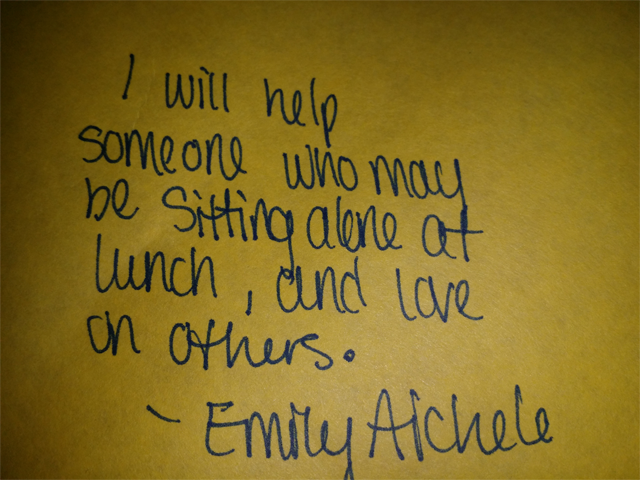 I will help
someone who may
be sitting alone at
lunch, and love
on others.
- Emily Aichele